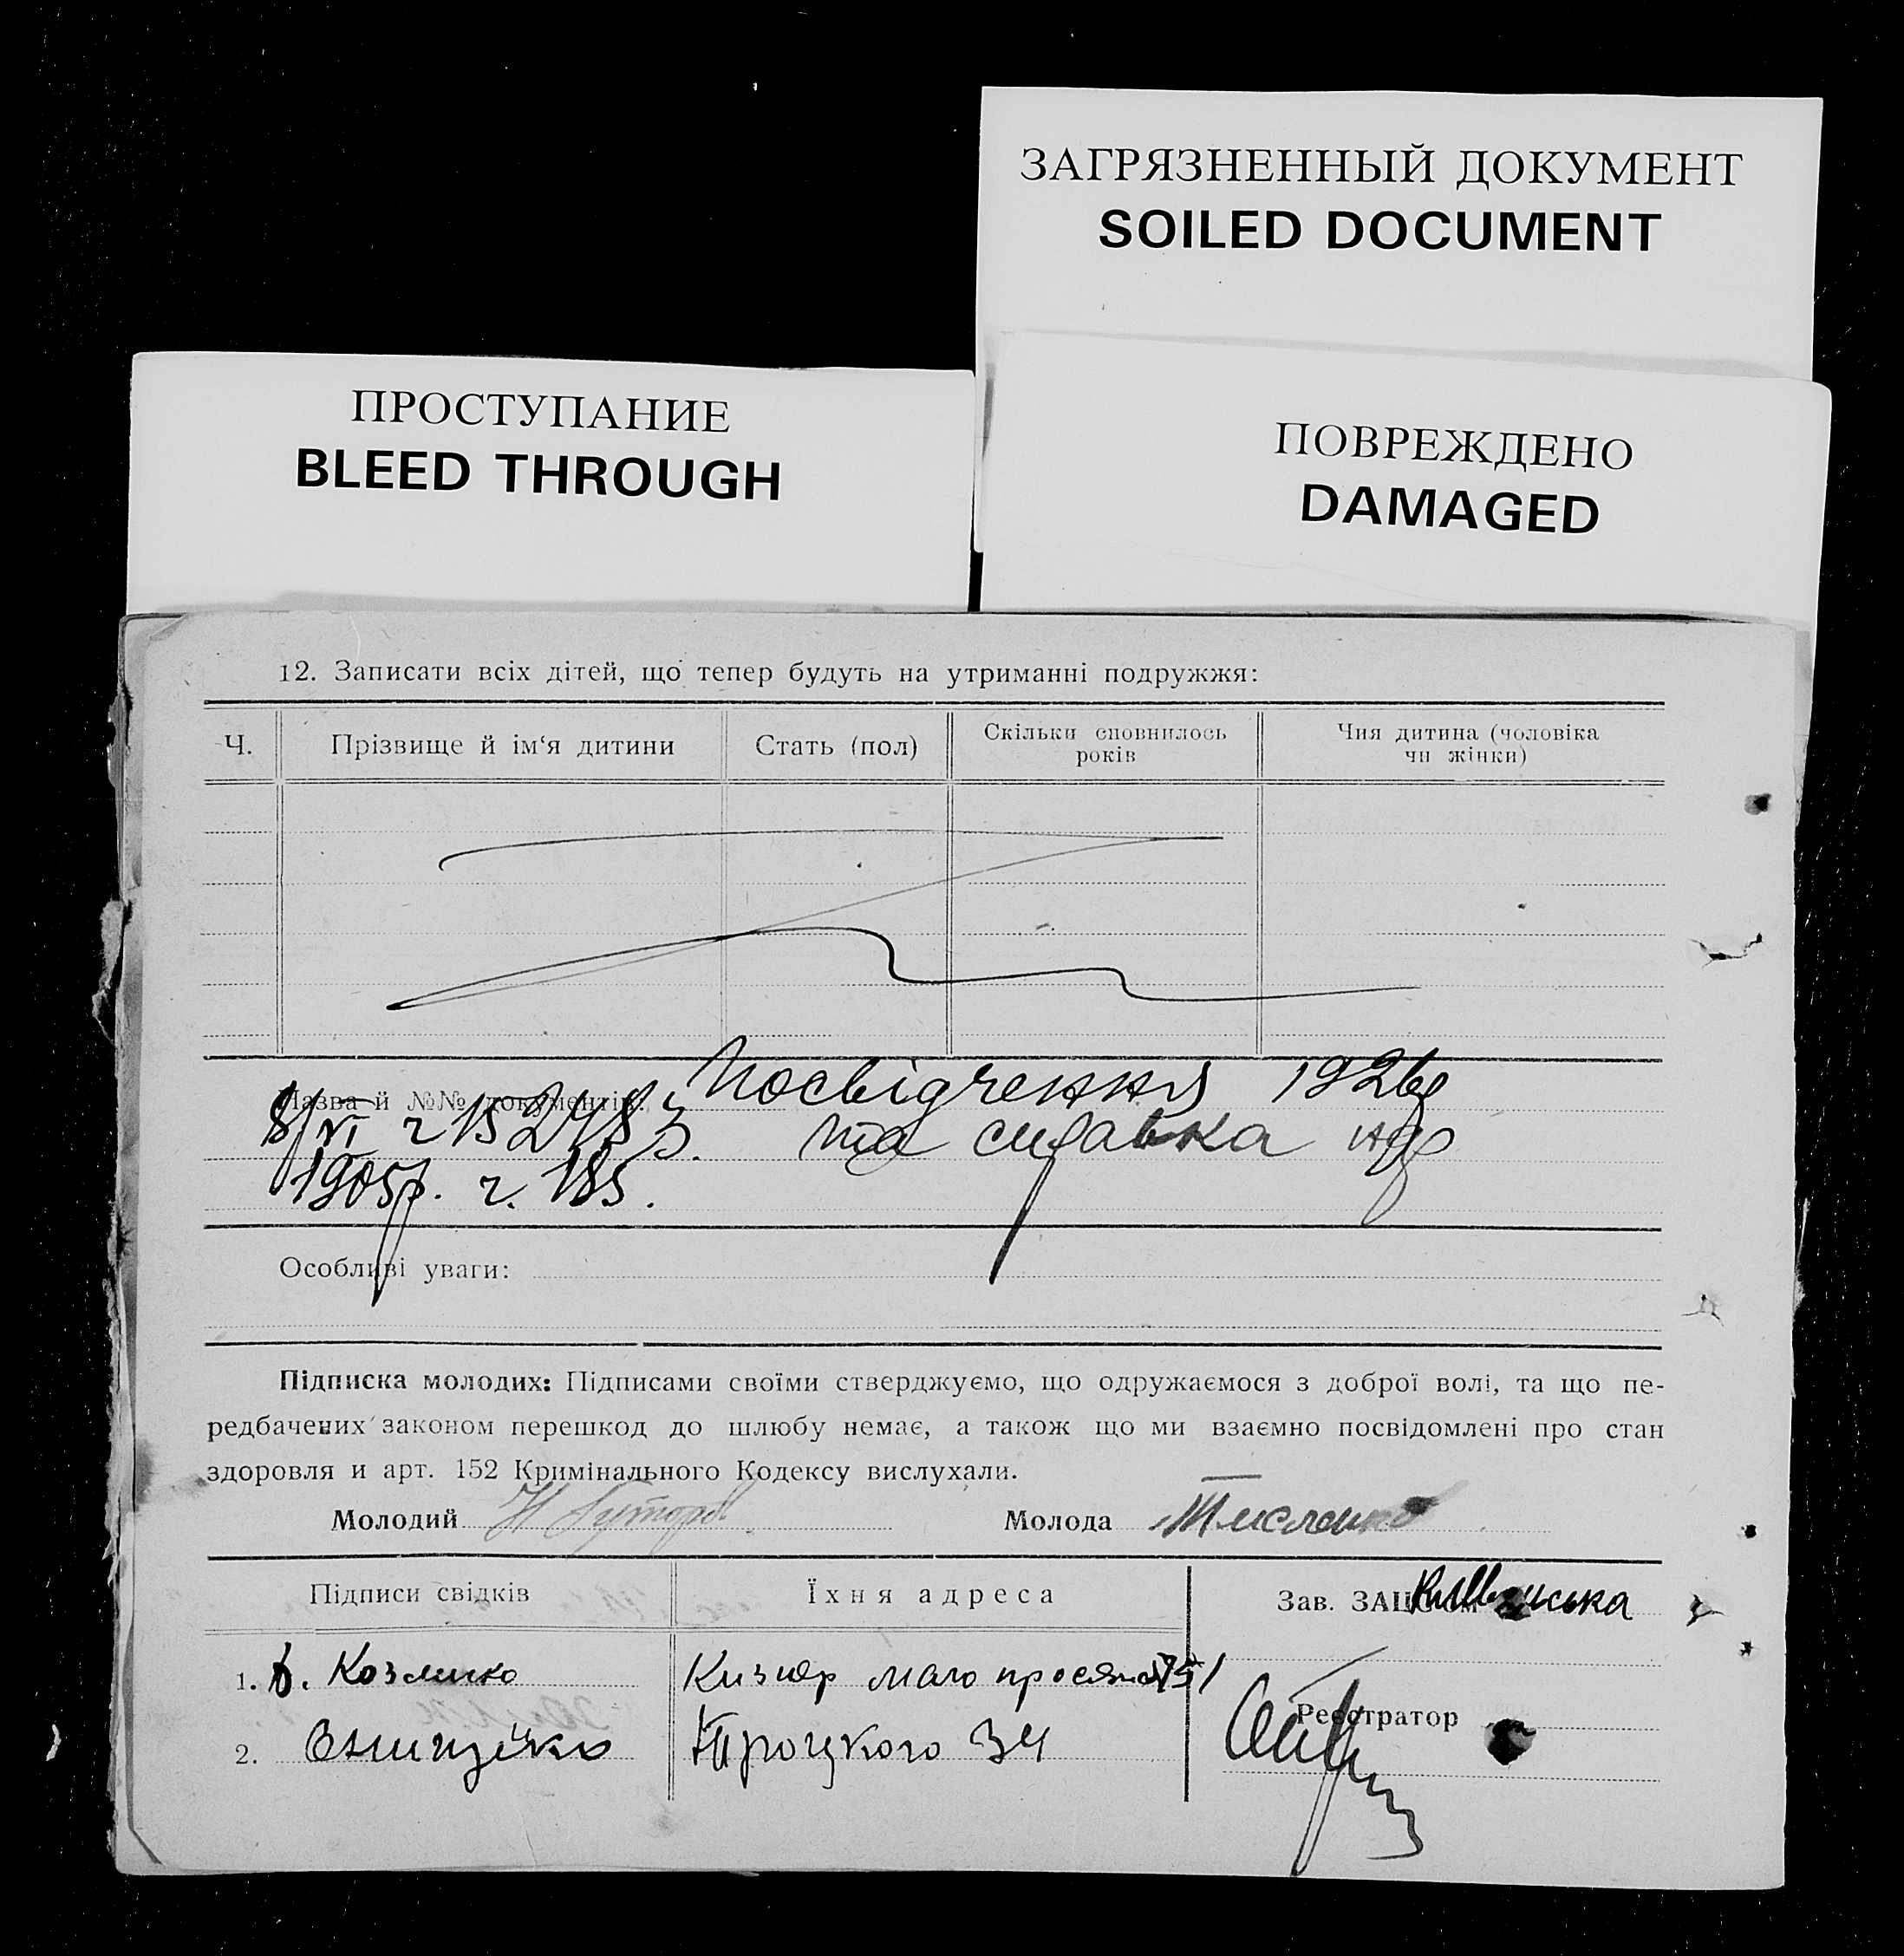 ЗАГРЯЗНЕННЫЙ ДОКУМЕНТ
SOILED DOCUMENT
ПРОСТУПАНИЕ
BLEED THROUGH
ПОВРЕЖДЕНО
DAMAGED
12. Записати всіх дітей, що тепер будуть на утриманні подружжя:
Ч. Прізвище й ім‘я дитини Стать (пол) Скільки сповнилось років Чия дитина (чоловіка чи жінки)
Назва й №№ документів: Посвідчення 1926р
8/VI ч 152483. та справка
1905р. ч. 185.
Особливі уваги:
Підписка молодих: Підписами своїми стверджуємо, що одружаємося з доброї волі, та що пе-
редбачених законом перешкод до шлюбу немає, а також що ми взаємно посвідомлені про стан
здоровля и арт. 152 Кримінального Кодексу вислухали.
Молодий Молода
Підписи свідків Їхня адреса Зав. ЗАЦС'ом
1. Козленко
Реєстратор
2. Троцкого 34